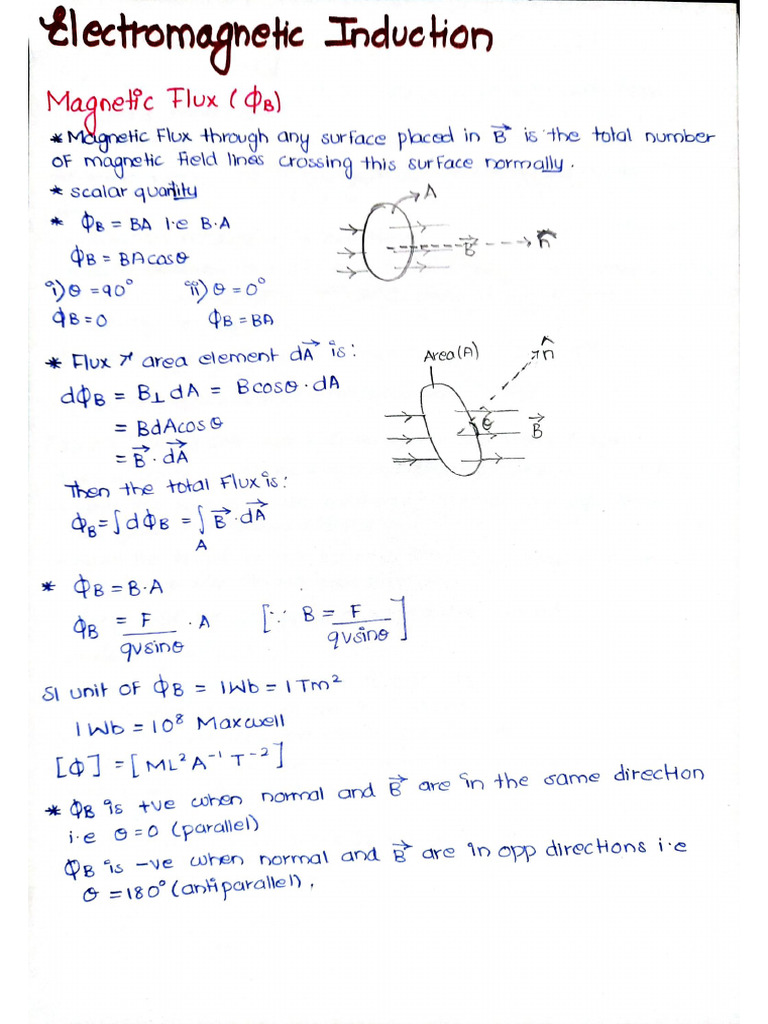 Electromagnetic Induction
Magnetic Flux (ΦB)
* Magnetic Flux through any surface placed in B⃗ is the total number
of magnetic field lines crossing this surface normally.
* scalar quantity
* ΦB = BA i.e B·A
ΦB = BAcosθ
i) θ = 90° ii) θ = 0°
ΦB = 0 ΦB = BA
A
B⃗
n̂
* Flux area element dA⃗ is:
dΦB = B⊥ dA = Bcosθ·dA
= BdAcosθ
= B⃗·dA⃗
Then the total Flux is:
ΦB = ∫dΦB = ∫B⃗·dA⃗
A
Area(A)
n̂
θ
B⃗
* ΦB = B·A
ΦB = F/qvsinθ ·A [∵ B = F/qvsinθ]
SI unit of ΦB = 1Wb = 1Tm²
1Wb = 10⁸ Maxwell
[Φ] = [ML²A⁻¹T⁻²]
* ΦB is +ve when normal and B⃗ are in the same direction
i.e θ=0 (parallel)
ΦB is -ve when normal and B⃗ are in opp directions i.e
θ = 180° (antiparallel).